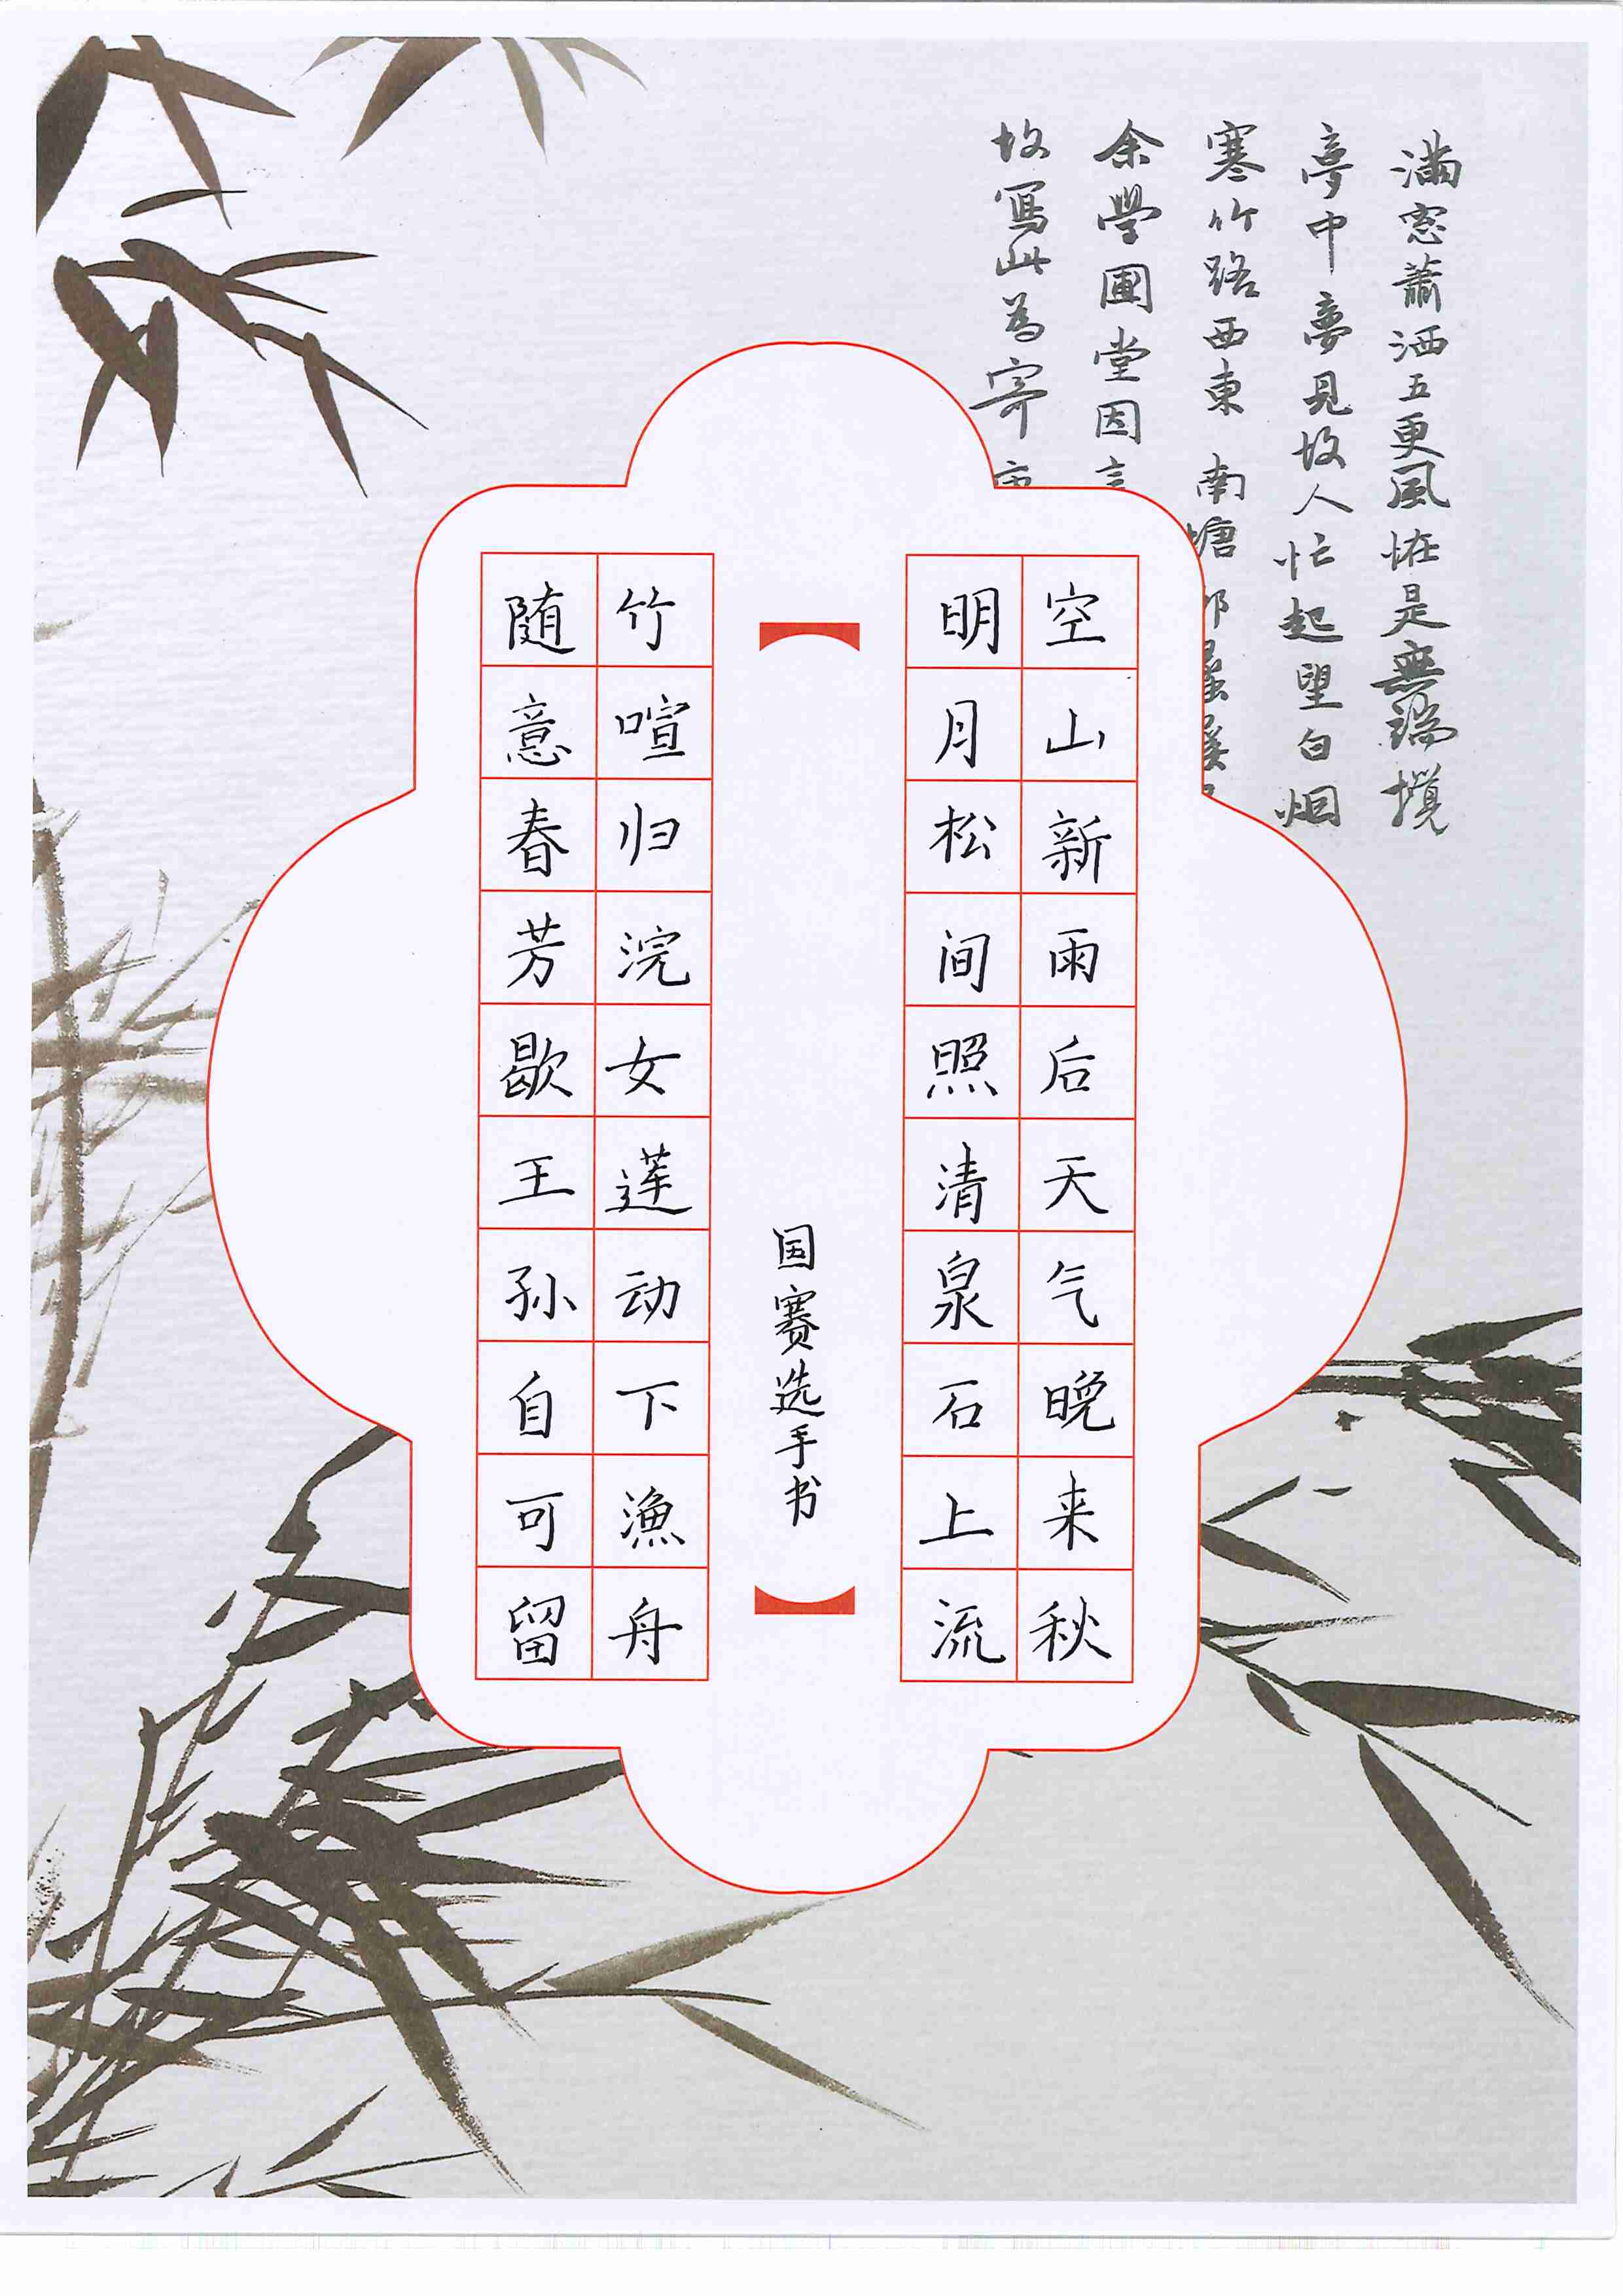 滿窓蕭洒五更風恠是無端攪
夢中夢見故人忙起望白烟
寒竹路西東南塘
余學圃堂因
故寫此為寄
空山新雨后天气晚来秋
明月松间照清泉石上流
国赛选手书
竹喧归浣女莲动下渔舟
随意春芳歇王孙自可留